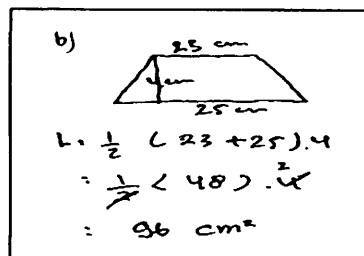 b)
23 cm
4 cm
25 cm
L = 1/2 (23 + 25) . 4
= 1/2 (48) . 4 2
= 96 cm²